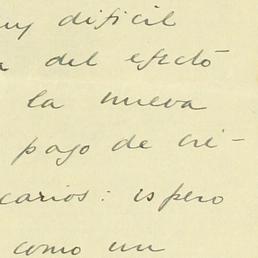 muy difícil
del efecto
la nueva
pago de cré-
carios: espero
como un